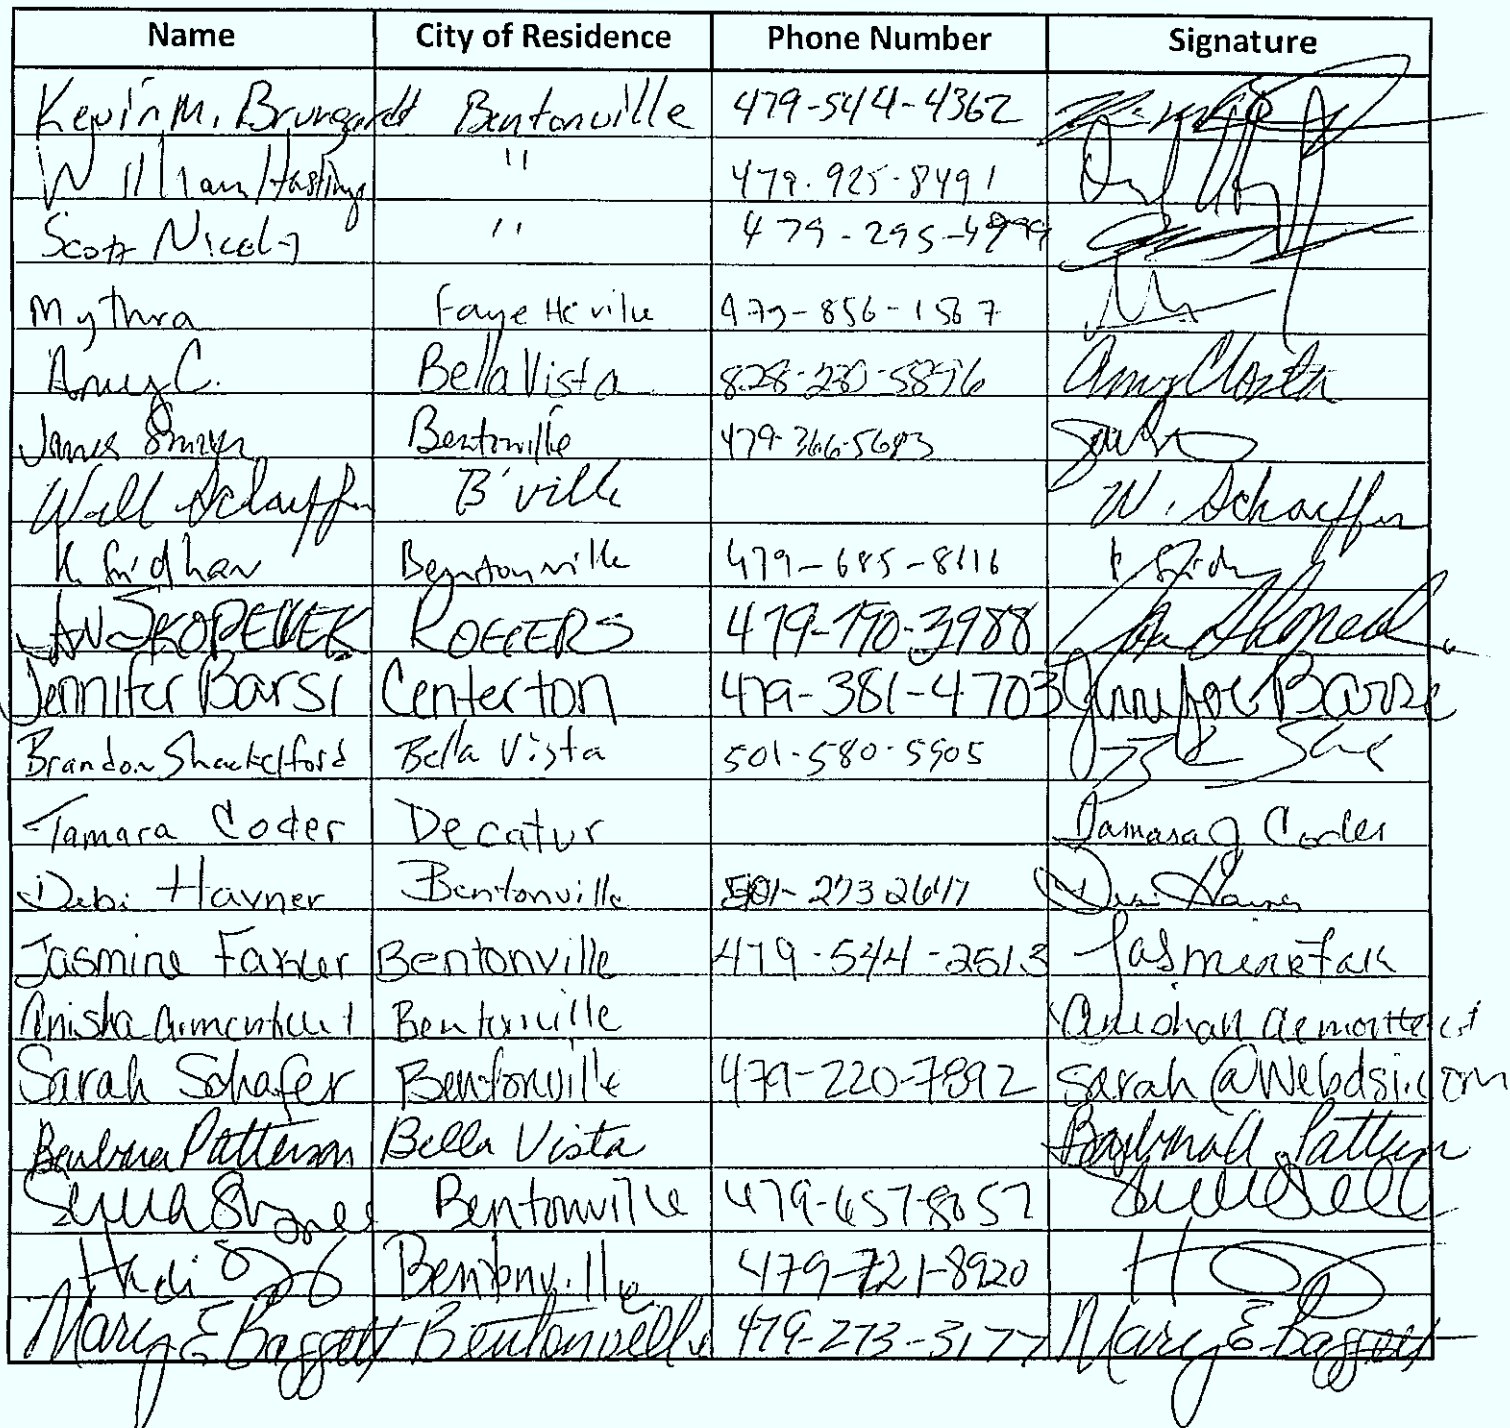 Name City of Residence Phone Number Signature
Kevin M. Brungardt Bentonville 479-544-4362
William Hastings " 479.925-8491
Scott Nicol " 479-295-4999
Mythra Fayetteville 479-856-1567
Amy C. Bella Vista 828-230-5896 Amy
James Bentonville 479-366-5683
Will Schaeffer B'ville W. Schaeffer
K Sridhar Bentonville 479-685-8116 K Sridh
JAN SKOPECEK ROGERS 479-790-3988 Jan Skopecek
Jennifer Barsi Centerton 479-381-4703 Jennifer Barsi
Brandon Shackelford Bella Vista 501-580-5905
Tamara Coder Decatur Tamara J Coder
Debi Havner Bentonville 501-273 2647 Debi Havner
Jasmine Farker Bentonville 479-544-2513 Jasmine Fark
Anisha Armenticut Bentonville
Sarah Schafer Bentonville 479-220-7892 sarah@Webdsi.com
Barbara Patterson Bella Vista Barbara A Patterson
Bentonville 479-657-8057
Hadi Bentonville 479-721-8920 H
Mary E Baggett Bentonville 479-273-3177 Mary E Baggett